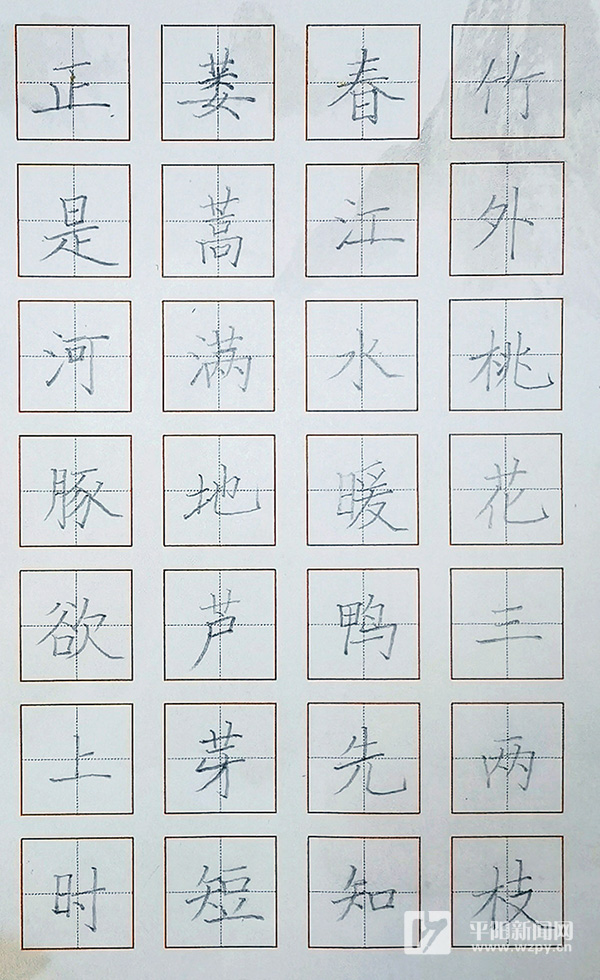 竹外桃花三两枝
春江水暖鸭先知
蒌蒿满地芦芽短
正是河豚欲上时
平阳新闻网
www.wzpy.cn